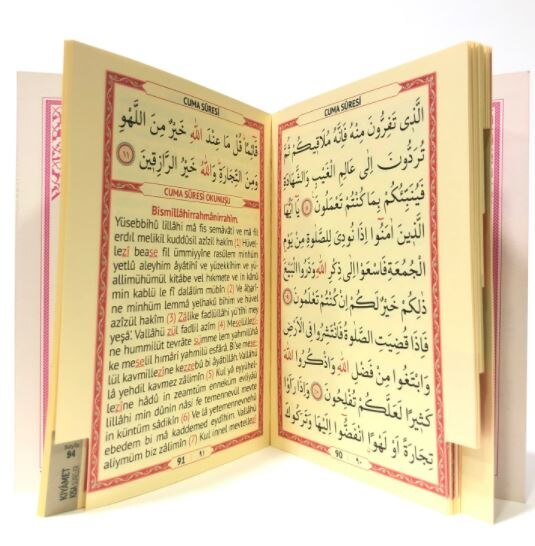 CUMA SÛRESİ
الَّذ۪ي تَفِرُّونَ مِنْهُ فَاِنَّهُ مُلَاق۪يكُمْ ثُمَّ
تُرَدُّونَ اِلٰى عَالِمِ الْغَيْبِ وَالشَّهَادَةِ
فَيُنَبِّئُكُمْ بِمَا كُنْتُمْ تَعْمَلُونَ ﴿٨﴾ يَٓا اَيُّهَا
الَّذ۪ينَ اٰمَنُٓوا اِذَا نُودِيَ لِلصَّلٰوةِ مِنْ يَوْمِ
الْجُمُعَةِ فَاسْعَوْا اِلٰى ذِكْرِ اللّٰهِ وَذَرُوا الْبَيْعَ
ذٰلِكُمْ خَيْرٌ لَكُمْ اِنْ كُنْتُمْ تَعْلَمُونَ ﴿٩﴾
فَاِذَا قُضِيَتِ الصَّلٰوةُ فَانْتَشِرُوا فِي الْاَرْضِ
وَابْتَغُوا مِنْ فَضْلِ اللّٰهِ وَاذْكُرُوا اللّٰهَ
كَث۪يرًا لَعَلَّكُمْ تُفْلِحُونَ ﴿١٠﴾ وَاِذَا رَاَوْا
تِجَارَةً اَوْ لَهْوًا انْفَضُّٓوا اِلَيْهَا وَتَرَكُوكَ
90 ٩٠
CUMA SÛRESİ
قَٓائِمًا قُلْ مَا عِنْدَ اللّٰهِ خَيْرٌ مِنَ اللَّهْوِ
وَمِنَ التِّجَارَةِ وَاللّٰهُ خَيْرُ الرَّازِق۪ينَ ﴿١١﴾
CUMA SÛRESİ OKUNUŞU
Bismillâhirrahmânirrahîm.
Yüsebbihû lillâhi mâ fis semâvâti ve mâ fil
erdıl melikil kuddûsil azîzil hakîm (1) Hüvel-
lezî bease fil ümmiyyîne rasûlem minhüm
yetlû aleyhim âyâtihî ve yüzekkîhim ve yü-
allimühümül kitâbe vel hıkmete ve in kânû
min kablü le fî dalâlim mübîn (2) Ve âharî-
ne minhüm lemmâ yelhakû bihim ve hüvel
azîzül hakîm (3) Zâlike fadlüllâhi yü'tîhi mey
yeşâ'. Vallâhü zül fadlil azîm (4) Meselüllezî-
ne hummilüt tevrâte sümme lem yahmilûhâ
ke meselil hımâri yahmilü esfârâ. Bi'se mese-
lül kavmillezîne kezzebû bi âyâtillâh. Vallâhü
lâ yehdil kavmez zâlimîn (5) Kul yâ eyyühel-
lezîne hâdû in zeamtüm enneküm evliyâü
lillâhi min dûnin nâsi fe temennevül mevte
in küntüm sâdikîn (6) Ve lâ yetemennevnehû
ebedem bi mâ kaddemed eydîhim. Vallâhü
alîymüm biz zâlimîn (7) Kul innel mevtellezî
91 ٩١
Sayfa
94
KIYÂMET
KISA SÛRELER